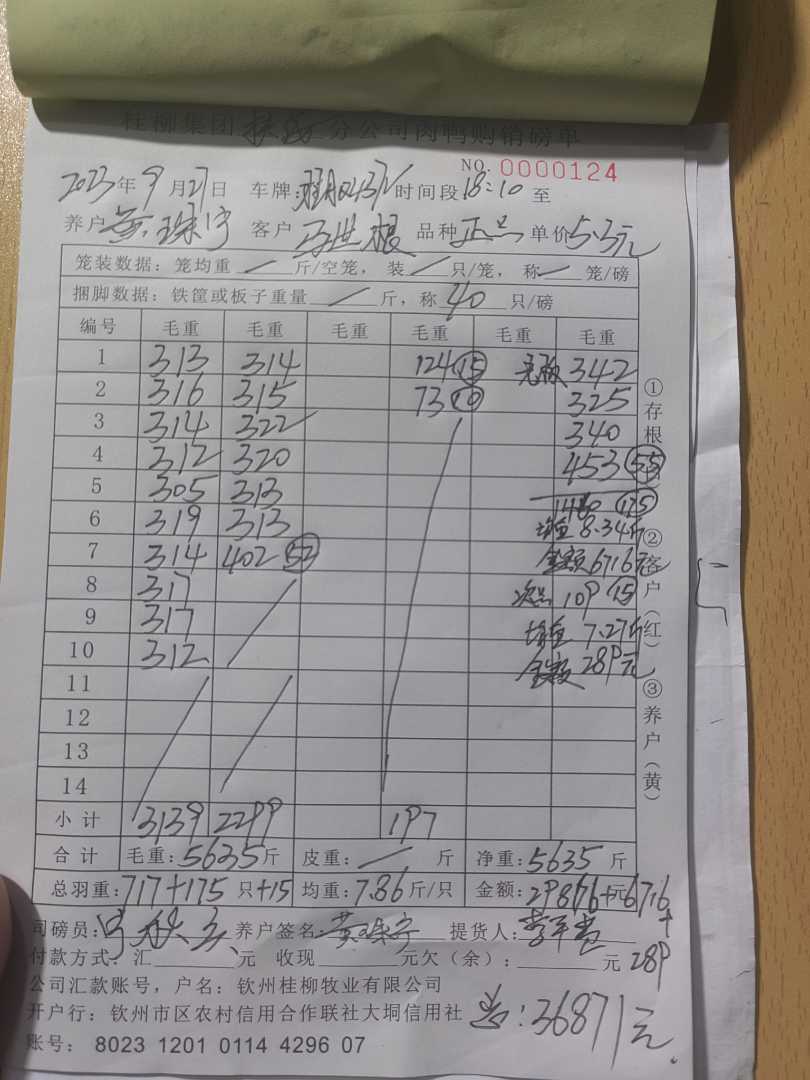 桂柳集团 分公司肉鸭购销磅单
NO. 0000124
2023年9月27日 车牌: 时间段18:10至
养户 黄珠宇 客户 马世根 品种 正品 单价5.3元
笼装数据：笼均重 / 斤/空笼，装 / 只/笼，称 / 笼/磅
捆脚数据：铁筐或板子重量 / 斤，称 40 只/磅
编号 毛重 毛重 毛重 毛重 毛重 毛重
1 313 314 124 15 342
2 316 315 73 10 325
3 314 322 340
4 312 320 453 55
5 305 313 1460 175
6 319 313 均重 8.34斤
7 314 402 52 金额 6716元
8 317 次品 109 15
9 317 均重 7.27斤
10 312 金额 289元
11
12
13
14
小计 3139 2299 197
合计 毛重：5635斤 皮重：/ 斤 净重：5635斤
总羽重：717+175只+15 均重：7.86斤/只 金额：29866元+6716
+
司磅员： 养户签名：黄珠宇 提货人：
付款方式：汇 元 收现 元欠（余）： 元 289
公司汇款账号，户名：钦州桂柳牧业有限公司
开户行：钦州市区农村信用合作联社大垌信用社
账号： 8023 1201 0114 4296 07
总：36871元
①存根 ②客户（红） ③养户（黄）